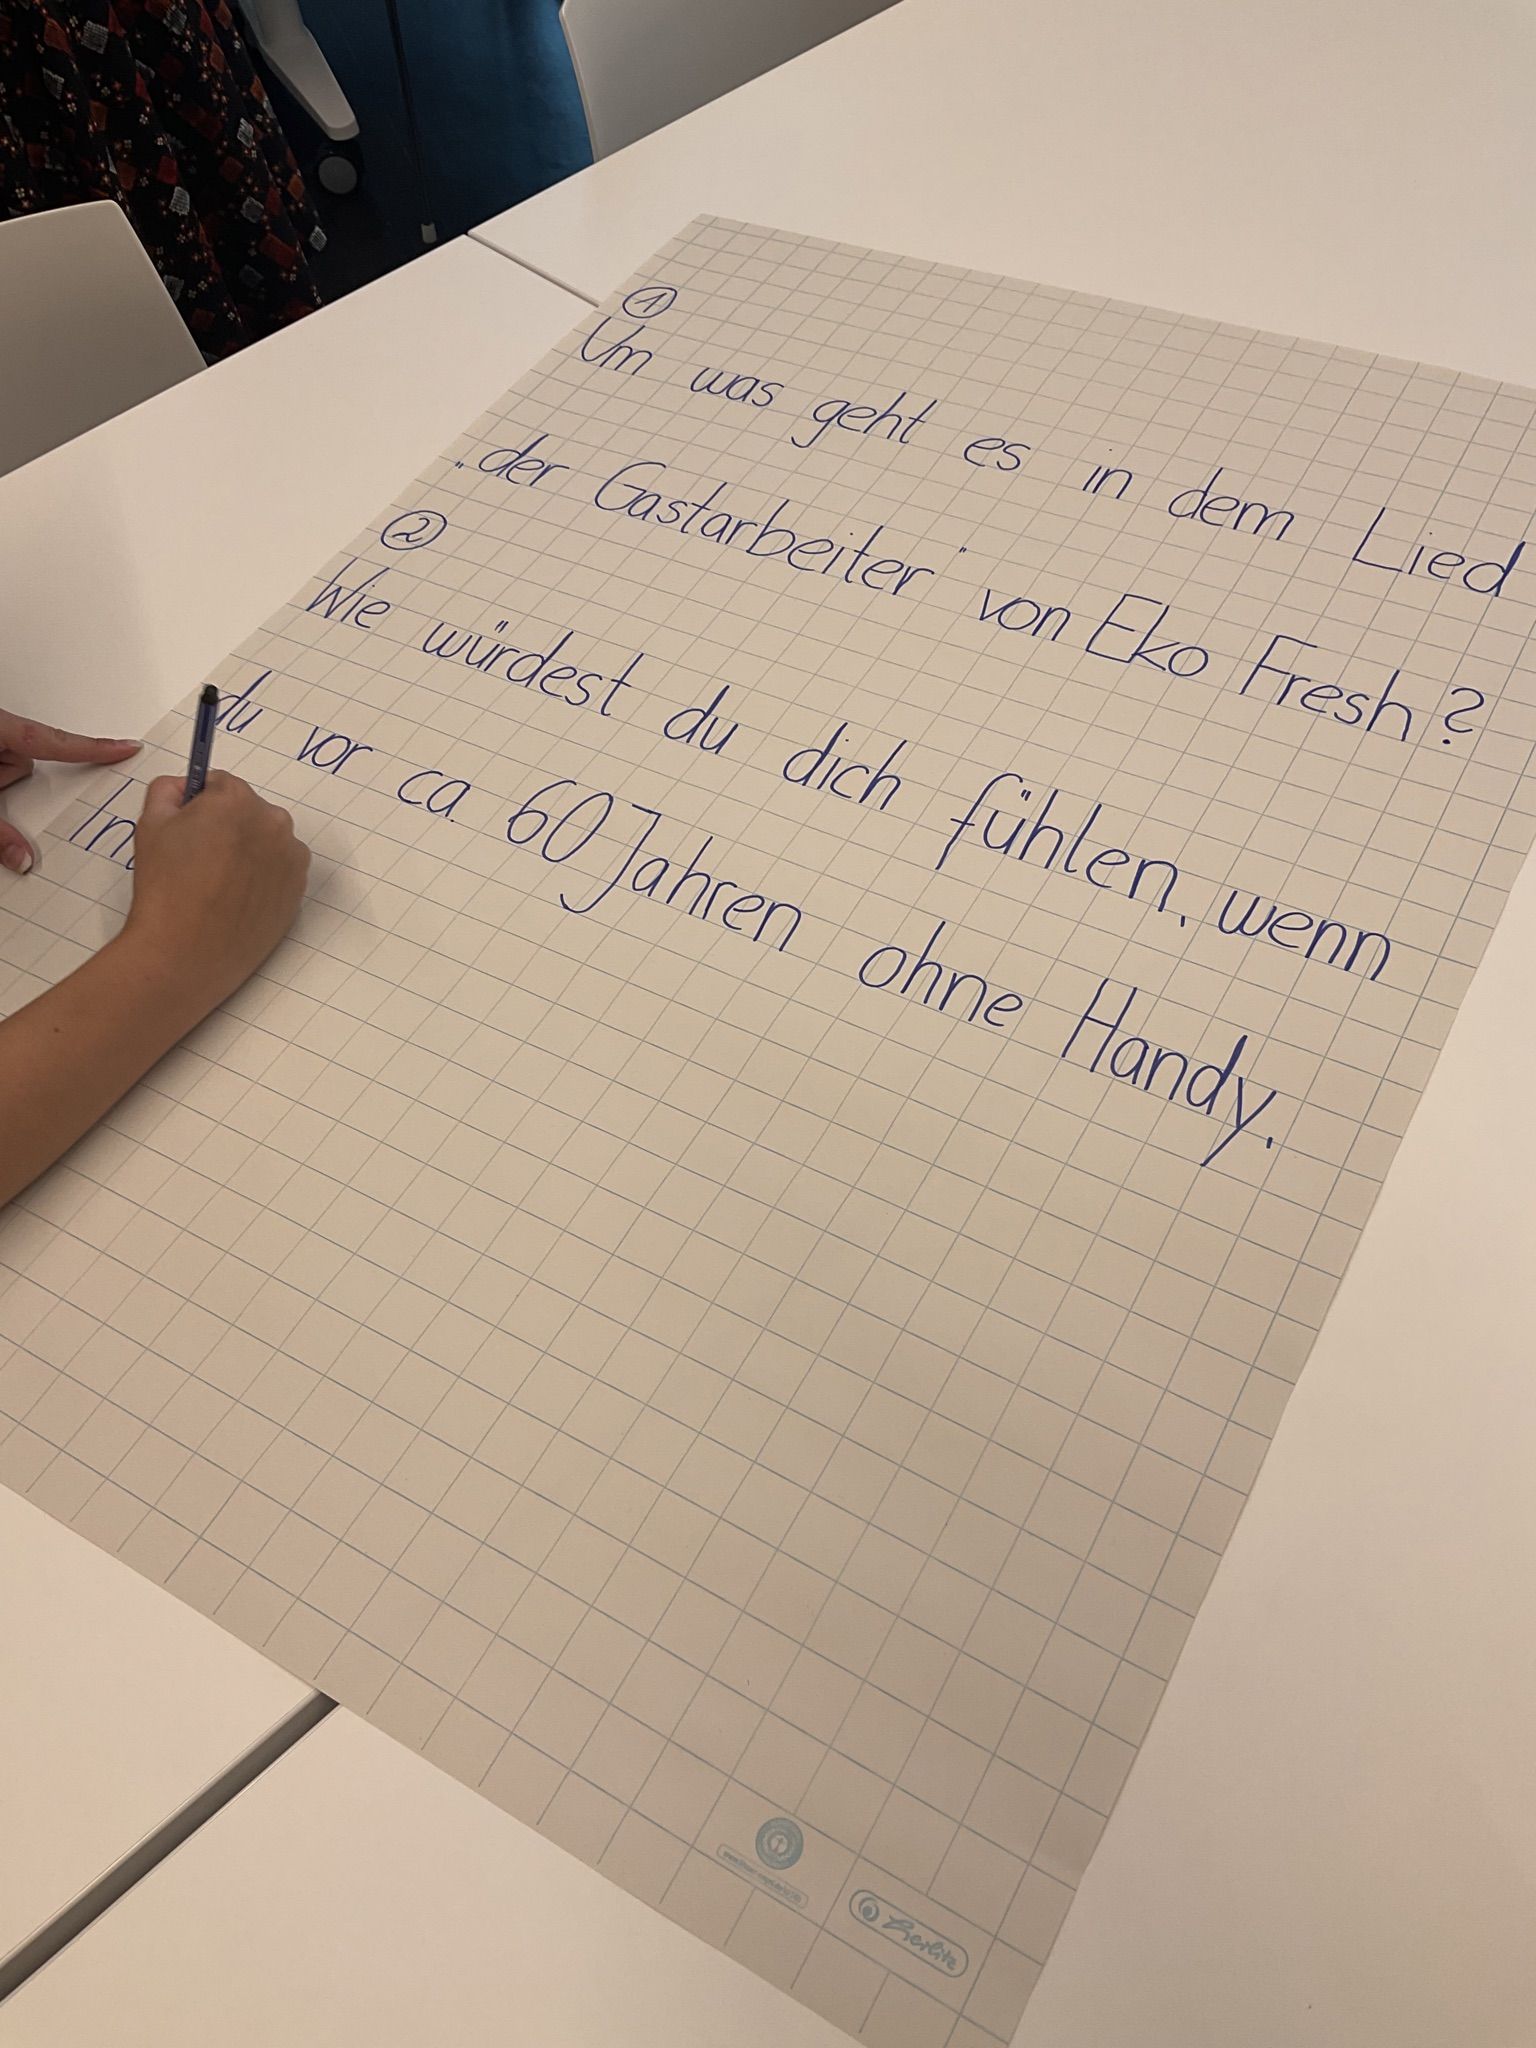 ①
Um was geht es in dem Lied
„der Gastarbeiter" von Eko Fresh?
②
Wie würdest du dich fühlen, wenn
du vor ca. 60 Jahren ohne Handy,
Herlitz